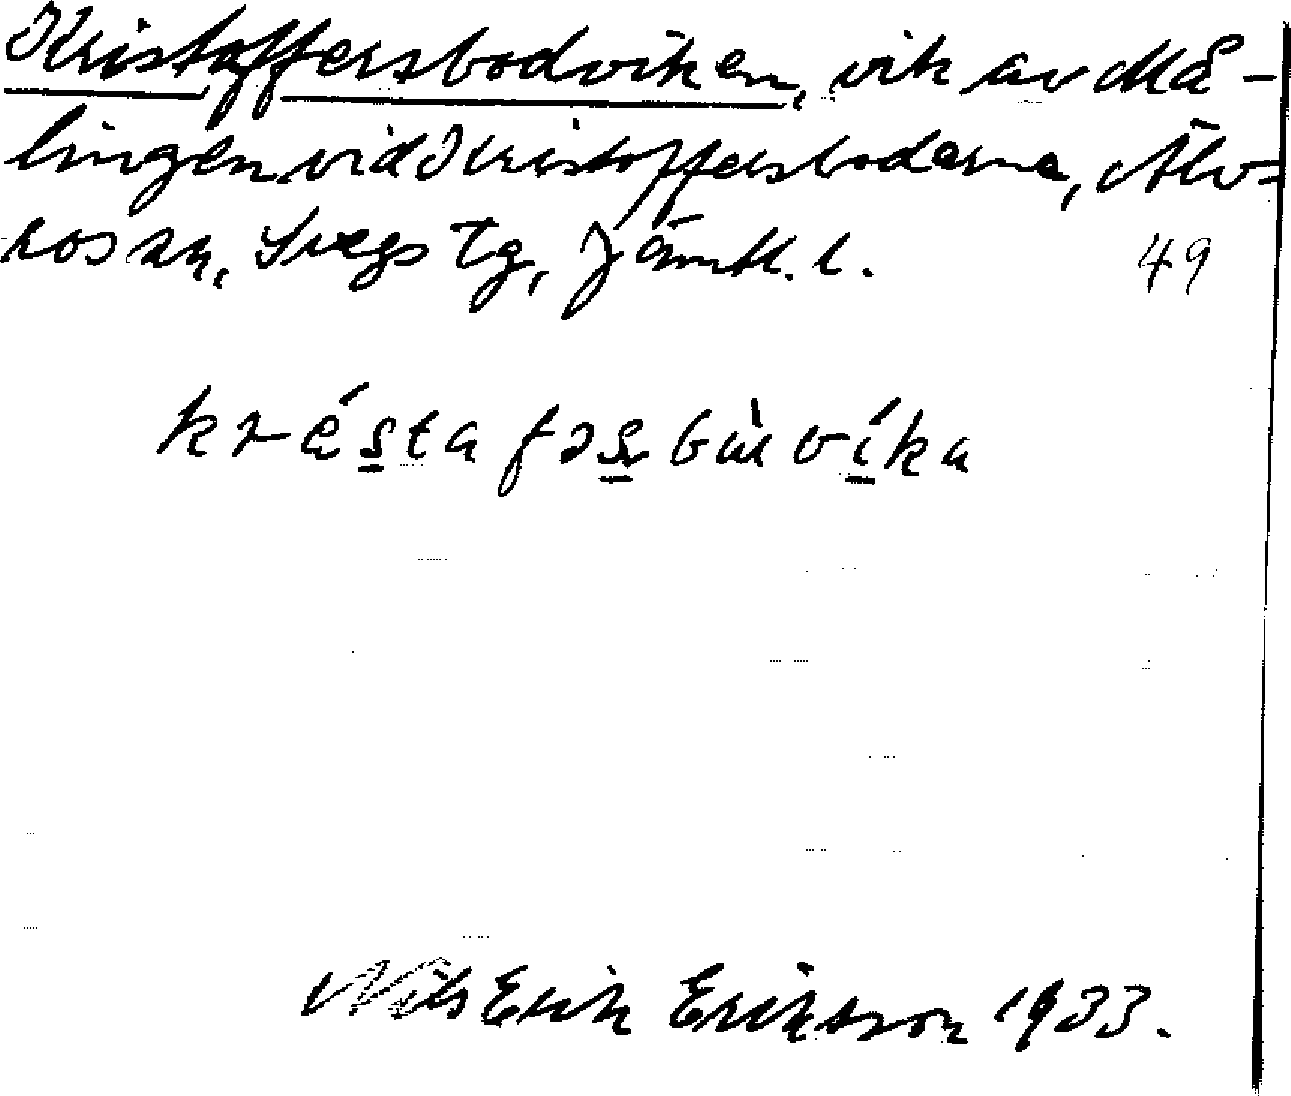 Kristoffersbodviken, vik av Må-
lingen vid Kristoffersboderna, Älv-
ros sn, Svegs tg, Jämtl. l. 49
kréstafəsbùvíka
Nils Erik Eriksson 1933.